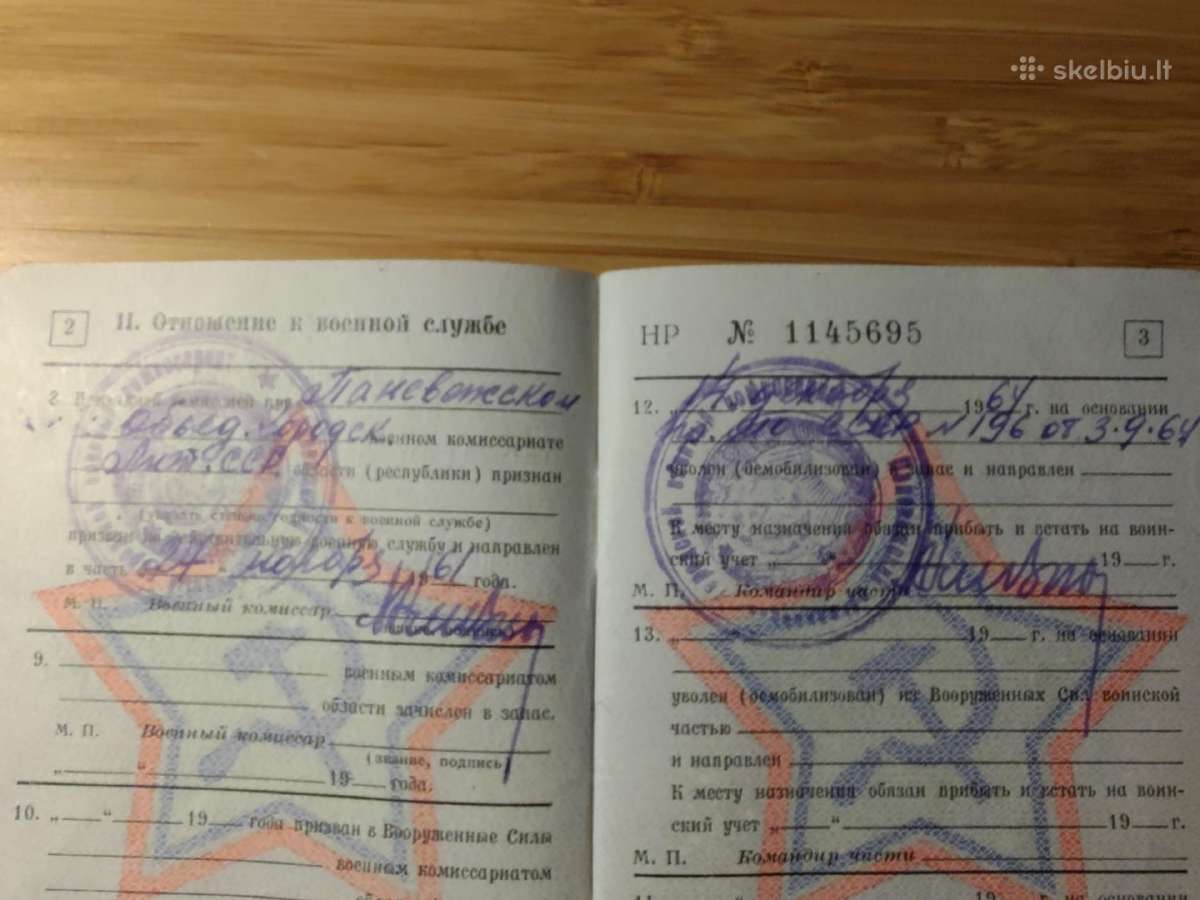 skelbiu.lt
2
II. Отношение к военной службе
Паневежском
Объед. Городск. военном комиссариате
Лит. ССР области (республики) признан
(указать степень годности к военной службе)
призван на действительную военную службу и направлен
в часть „27“ ноября 1961 года.
М. П. Военный комиссар
9.
военным комиссариатом
области зачислен в запас.
М. П. Военный комиссар
(звание, подпись)
„ “ 19 года.
10. „ “ 19 года призван в Вооруженные Силы
военным комиссариатом
НР № 1145695
3
12. 1964 г. на основании
пр. МО СССР № 196 от 3.9.64
уволен (демобилизован) в запас и направлен
К месту назначения обязан прибыть и встать на воин-
ский учет „ “ 19 г.
М. П. Командир части
13. „ 19 г. на основании
уволен (демобилизован) из Вооруженных Сил воинской
частью
и направлен
К месту назначения обязан прибыть и встать на воин-
ский учет „ “ 19 г.
М. П. Командир части
19 г. на основании